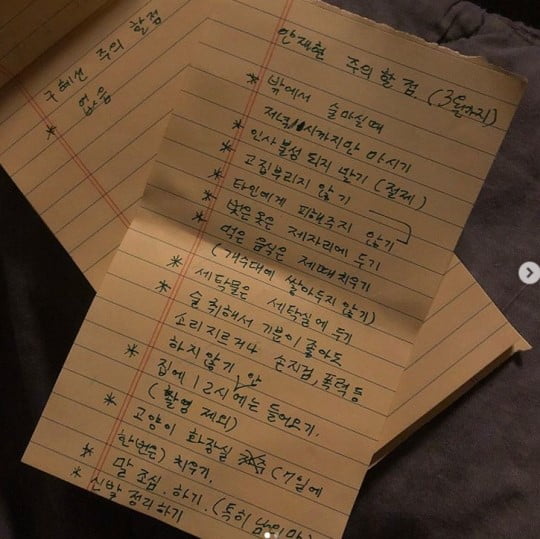 구혜선 주의 할점
* 없음
안재현 주의 할 점. (3일까지)
* 밖에서 술마실때
저녁 11시까지만 마시기
* 인사불성 되지 말기 (절제)
* 고집부리지 않기
* 타인에게 피해주지 않기
* 벗은 옷은 제자리에 두기
* 먹은 음식은 제때 치우기
(개수대에 쌓아두지 않기)
* 세탁물은 세탁실에 두기
* 술 취해서 기분이 좋아도
소리지르거나 손지검, 폭력등
하지 않기
* 집에 12시 안에는 들어오기.
(촬영 제외)
* 고양이 화장실 (7일에
한번은) 치우기.
* 말 조심. 하기. (특히 남의 말)
* 신발 정리하기